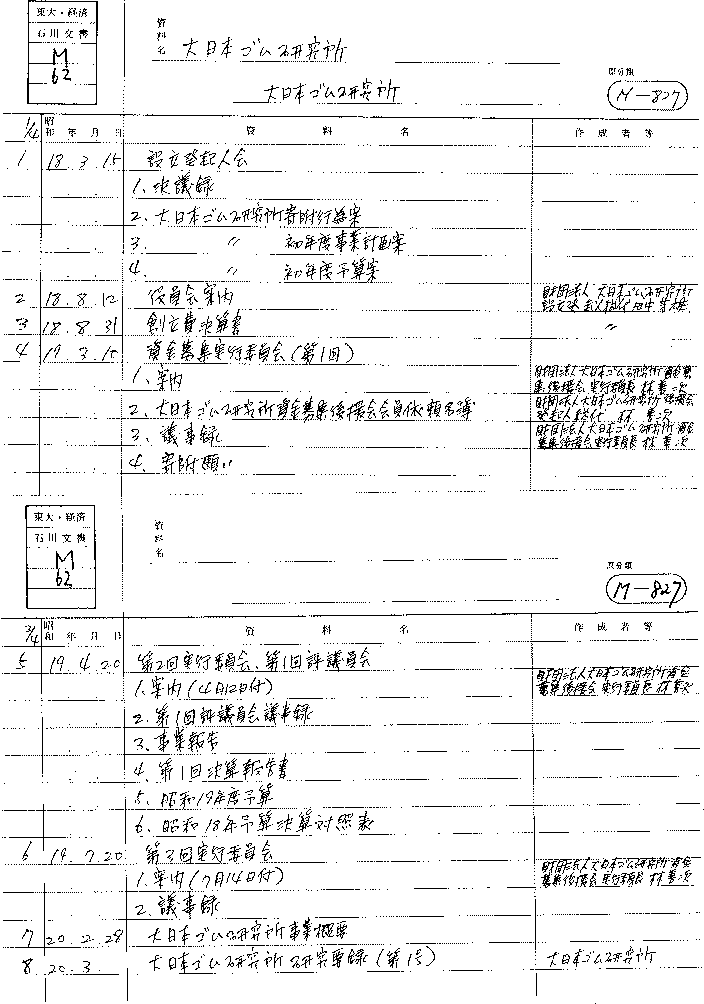 東大・経済
石川文書
M
62
資料名 大日本ゴム研究所
大日本ゴム研究所
原分類
M-827
1/4 昭和 年 月 日 資料名 作成者等
1 18.3.15 設立発起人会
1. 決議録
2. 大日本ゴム研究所寄附行為案
3. 〃 初年度事業計画案
4. 〃 初年度予算案
2 18.8.12 役員会案内 財団法人 大日本ゴム研究所
設立発起人総代
3 18.8.31 創立費決算書 〃
4 19.3.15 資金募集実行委員会(第1回)
1. 案内 財団法人大日本ゴム研究所資金募
集後援会 実行委員長 林
2. 大日本ゴム研究所資金募集後援会会員依頼名簿 財団法人大日本ゴム研究所後援会
発起人総代 林
3. 議事録 財団法人大日本ゴム研究所資金
募集後援会実行委員長 林
4. 寄附願い
東大・経済
石川文書
M
62
資料名
原分類
M-827
3/4 昭和 年 月 日 資料名 作成者等
5 19.4.20 第2回実行委員会、第1回評議員会
1. 案内(4月12日付) 財団法人大日本ゴム研究所資金
募集後援会 実行委員長 林
2. 第1回評議員会議事録
3. 事業報告
4. 第1回決算報告書
5. 昭和19年度予算
6. 昭和18年予算決算対照表
6 19.7.20 第3回実行委員会
1. 案内(7月14日付) 財団法人大日本ゴム研究所資金
募集後援会 実行委員長 林
2. 議事録
7 20.2.28 大日本ゴム研究所事業概要
8 20.3. 大日本ゴム研究所研究要録(第1号) 大日本ゴム研究所